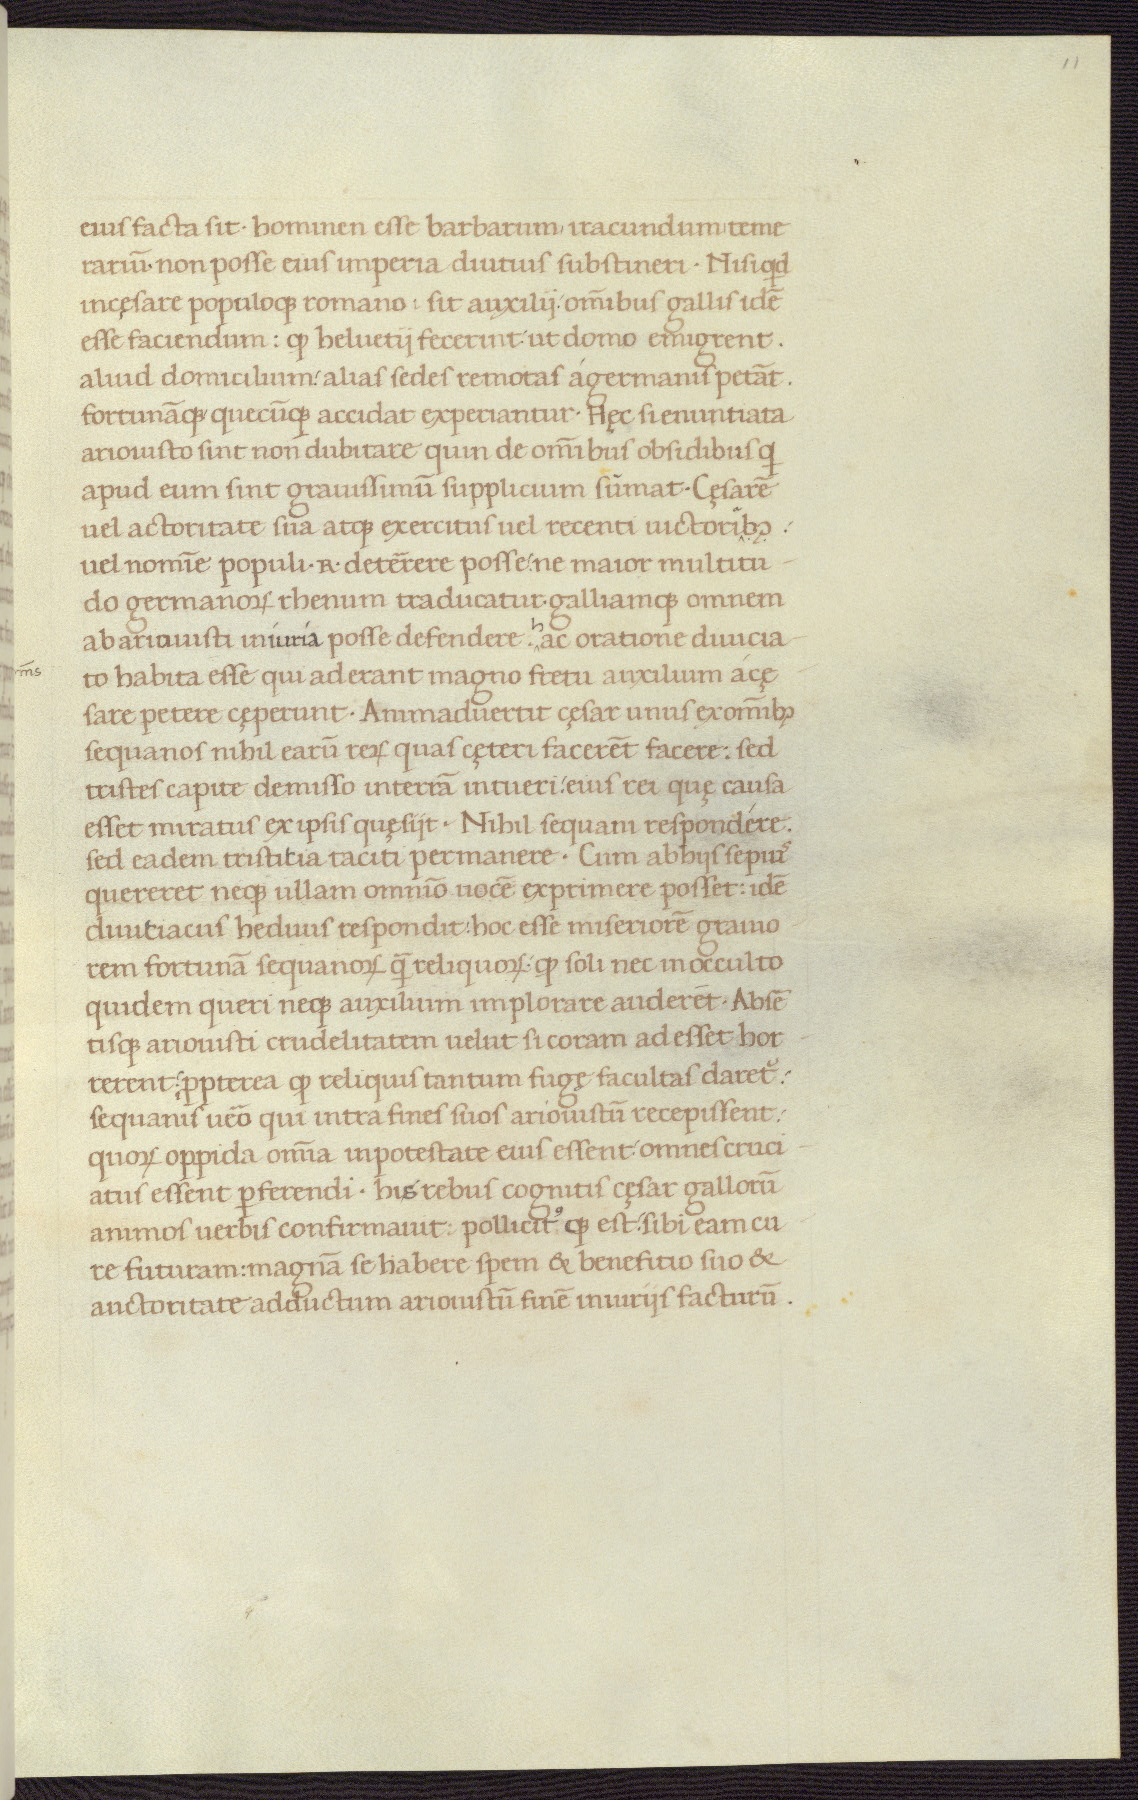 11
eius facta sit· hominen esse barbarum, iracundum, teme
rariū· non posse eius imperia diutius substineri · Nisi qd
incęsare populoq; romano : sit auxilij: om̄ibus gallis idē
esse faciendum : qp heluetij fecerint· ut domo emigrent .
aliud domicilium: alias sedes remotas á germanis petāt .
fortunāq; quecūq; accidat experiantur· Hęc si enuntiata
ariouisto sint non dubitare quin de om̄ibus obsidibus q̄
apud eum sint grauissimū supplicium sūmat· Cęsarē
uel actoritate sua atq; exercitus uel recenti uictorib; :
uel nomīe populi · R · detērere posse: ne maior multitu
do germanoꝝ rhenum traducatur· galliamq; omnem
ab ariouisti iniuria posse defendere : hac oratione diuicia
m̄s
to habita esse qui aderant magno fretu auxilium á cę
sare petere cęperunt · Animaduertit cęsar unus ex om̄ib;
sequanos nihil earū reꝝ quas cęteri facerēt facere: sed
tristes capite demisso in terrā intueri: eius rei quę causa
esset miratus ex ipsis quęsijt · Nihil sequani respondére.
sed eadem tristitia taciti permanere · Cum ab hijs sepius
quereret neq; ullam omnīo uocē exprimere posset: idē
diuitiacus heduus respondit: hoc esse miseriorē grauio
rem fortunā sequanoꝝ q̄ reliquoꝝ: qp soli nec in occulto
quidem queri neq; auxilium implorare auderēt · Absē
tisq; ariouisti crudelitatem uelut si coram ad esset hor
rerent: ꝓpterea qp reliquis tantum fugę facultas daret᷑ :
sequanis uēo qui intra fines suos ariouistū recepissent :
quoꝝ oppida om̄ia in potestate eius essent: omnes cruci
atus essent ꝑferendi · his rebus cognitis cęsar gallorū
animos uerbis confirmauit: pollicit⁹ q; est: sibi eam cu
re futuram: magnā se habere spem & benefitio suo &
auctoritate adductum ariouistū finē iniurijs facturū .